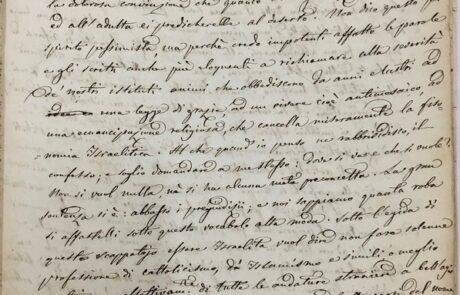 la dolorosa convinzione che quanto
ed all'adulto si predicherebbe al deserto. Non dico questo per
spirito pessimista ma perchè credo impotenti affatto le parole
e gli scritti anche più eloquenti a richiamare alla severità
De' nostri istituti animi che obbediscono da anni ed
una legge di grazia, ad un vivere cioè antimosaico, ad
una emancipazione religiosa, che cancella miseramente la fiso
nomia Israelitica. Al che quand'io penso ne rabbrividisco, il
confesso, e soglio domandare a me stesso: dove si va che si vuole?
Non si vuol nulla nè si ha alcuna meta preconcetta. La gran
sentenza si è: abbasso i pregiudizii, e noi sappiamo quanta roba
si affastelli sotto questo vocabolo alla moda. Sotto l'egida di
questo scappatojo essere Israelita vuol dire non fare solenne
professione di cattolicismo, d'Islamismo e simili; o meglio
di tutte le andature stonando a bell'agio
del nome